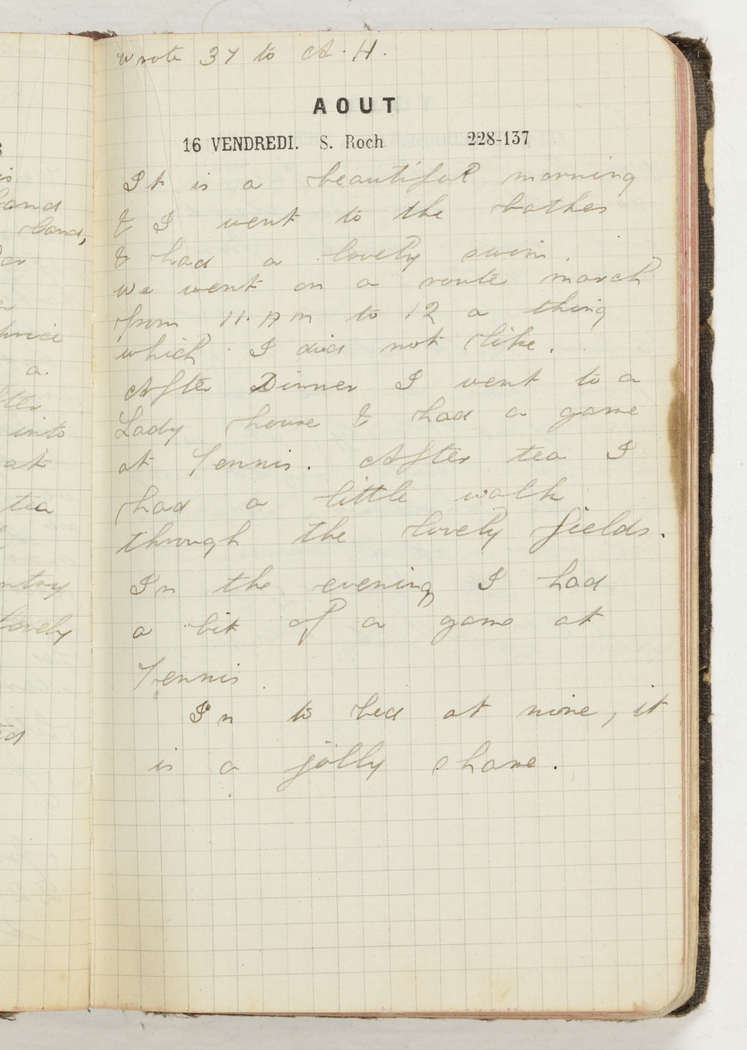 wrote 37 to A. H.
AOUT
16 VENDREDI. S. Roch 228-137
It is a beautiful morning
& I went to the bathes
& had a lovely swim.
we went on a route march
from 11. pm to 12 a thing
which I did not like.
After Dinner I went to a
Lady house & had a game
at Tennis. After tea I
had a little walk
through the lovely fields.
In the evening I had
a bit of a game at
Tennis
In to bed at nine, it
is a jolly shame.
is
land
land,
a
a.
into
at
tea
lovely